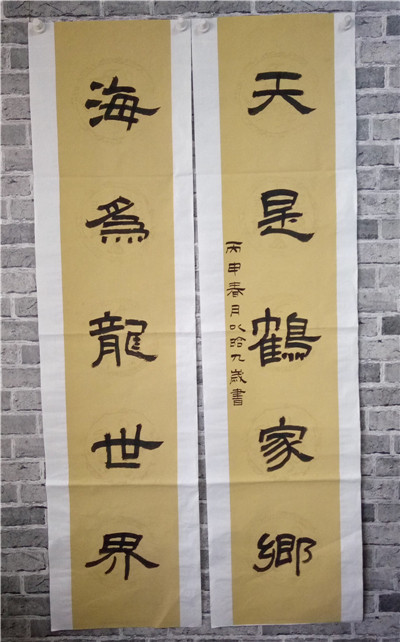 天是鶴家鄉
丙申春月九歲書
海為龍世界